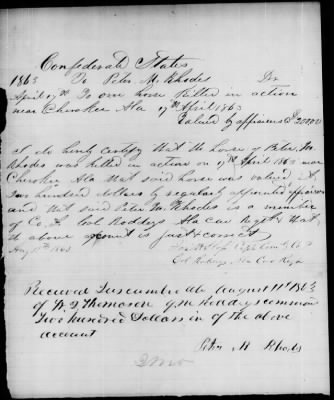 Confederate States
1863 To Peter M. Rhodes Dr
April 17th To one horse Killed in action
near Cherokee Ala 17th April 1863
Valued by appraisers $200.00
I do hereby certify that the horse of Peter M.
Rhodes was killed in action on 17th April 1863 near
Cherokee Ala that said horse was valued at
Two hundred dollars by regularly appointed appraisers
and that said Peter M Rhodes is a member
of Co. Col Roddeys Ala Cav Regt & that
the above account is just & correct
Aug 11th 1863
Col Ala Cav Regt
Received Tuscumbia Ala August 11th 1863
of W. J. Thomason q.m Roddeys command
Two hundred Dollars in of the above
account
Peter M Rhodes